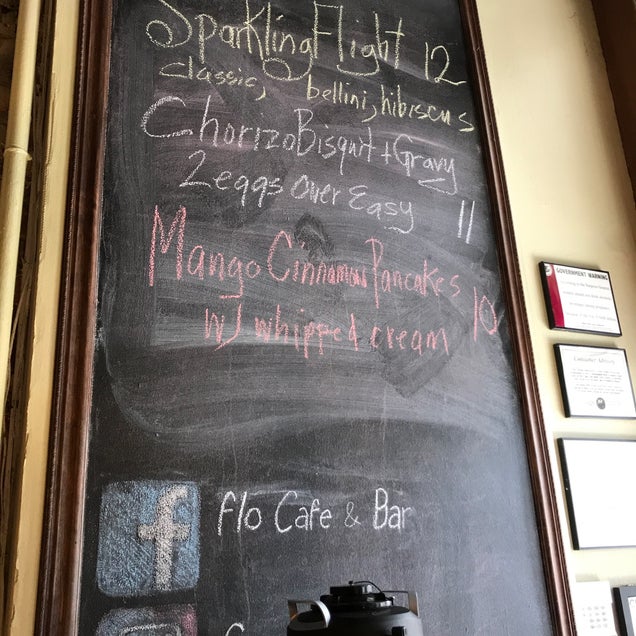 Sparkling Flight 12
classic, bellini, hibiscus
Chorizo Bisquit + Gravy
2 eggs over Easy 11
Mango Cinnamon Pancakes
w/ whipped cream 10
f
flo Cafe & Bar
GOVERNMENT WARNING